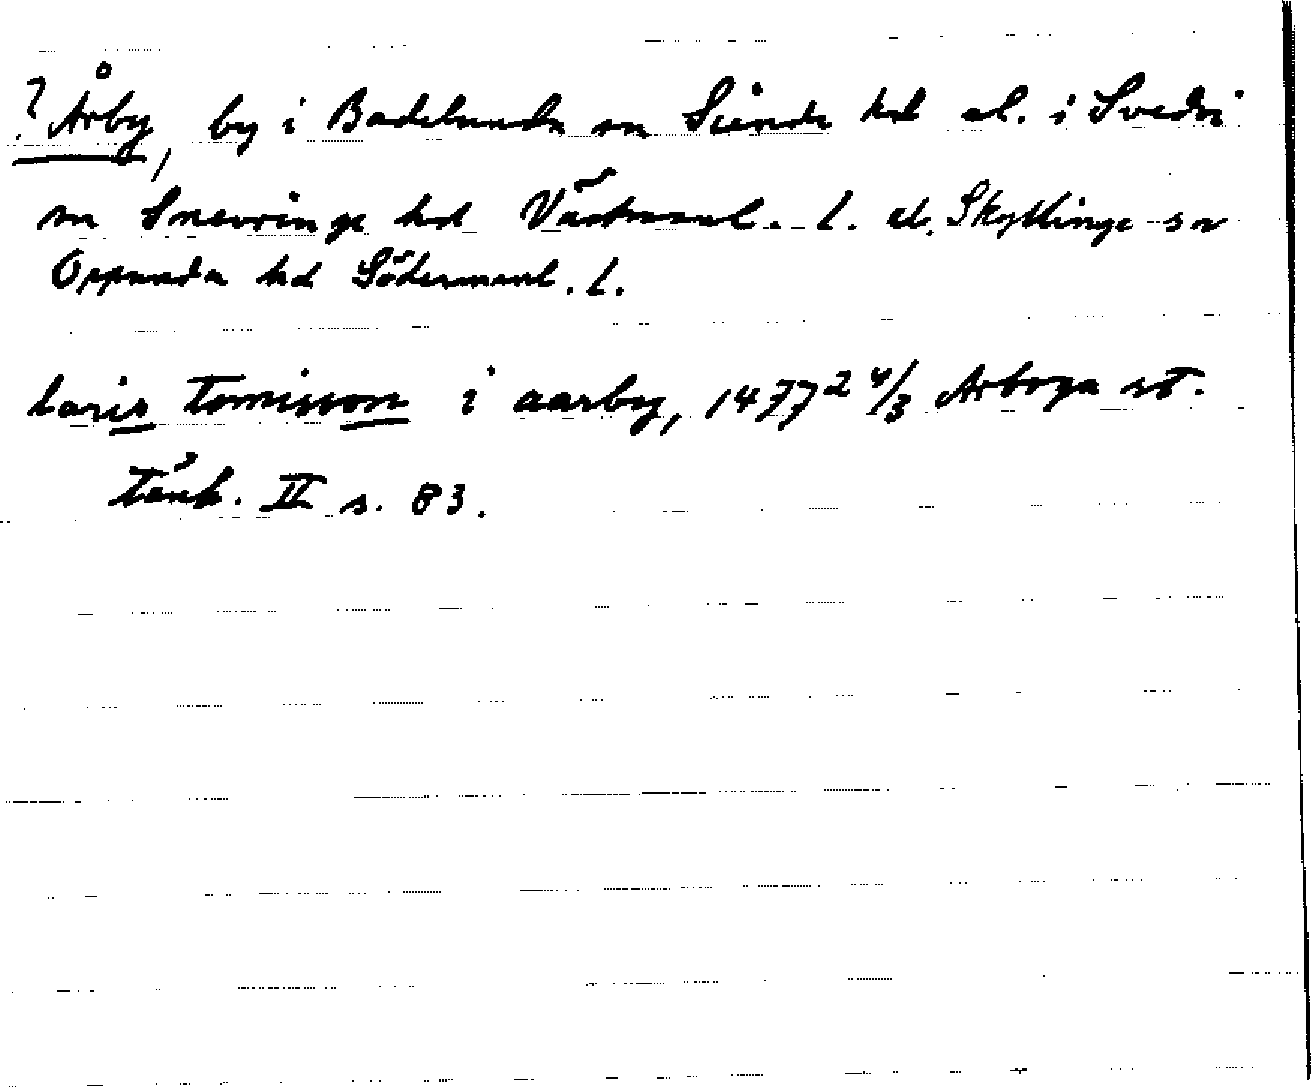 ? Årby, by i Badelunda sn Siende hd el. i Svedvi
sn Snevringe hd Västmanl. l. el. Skyttinge sn
Oppunda hd Södermanl. l.
laris tomisson i aarby, 1477 24/3 Arboga st.
tänk. II s. 83.